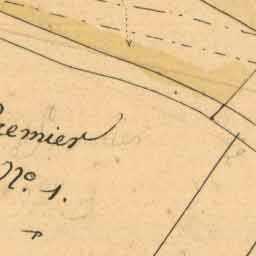 remier
No. 1.